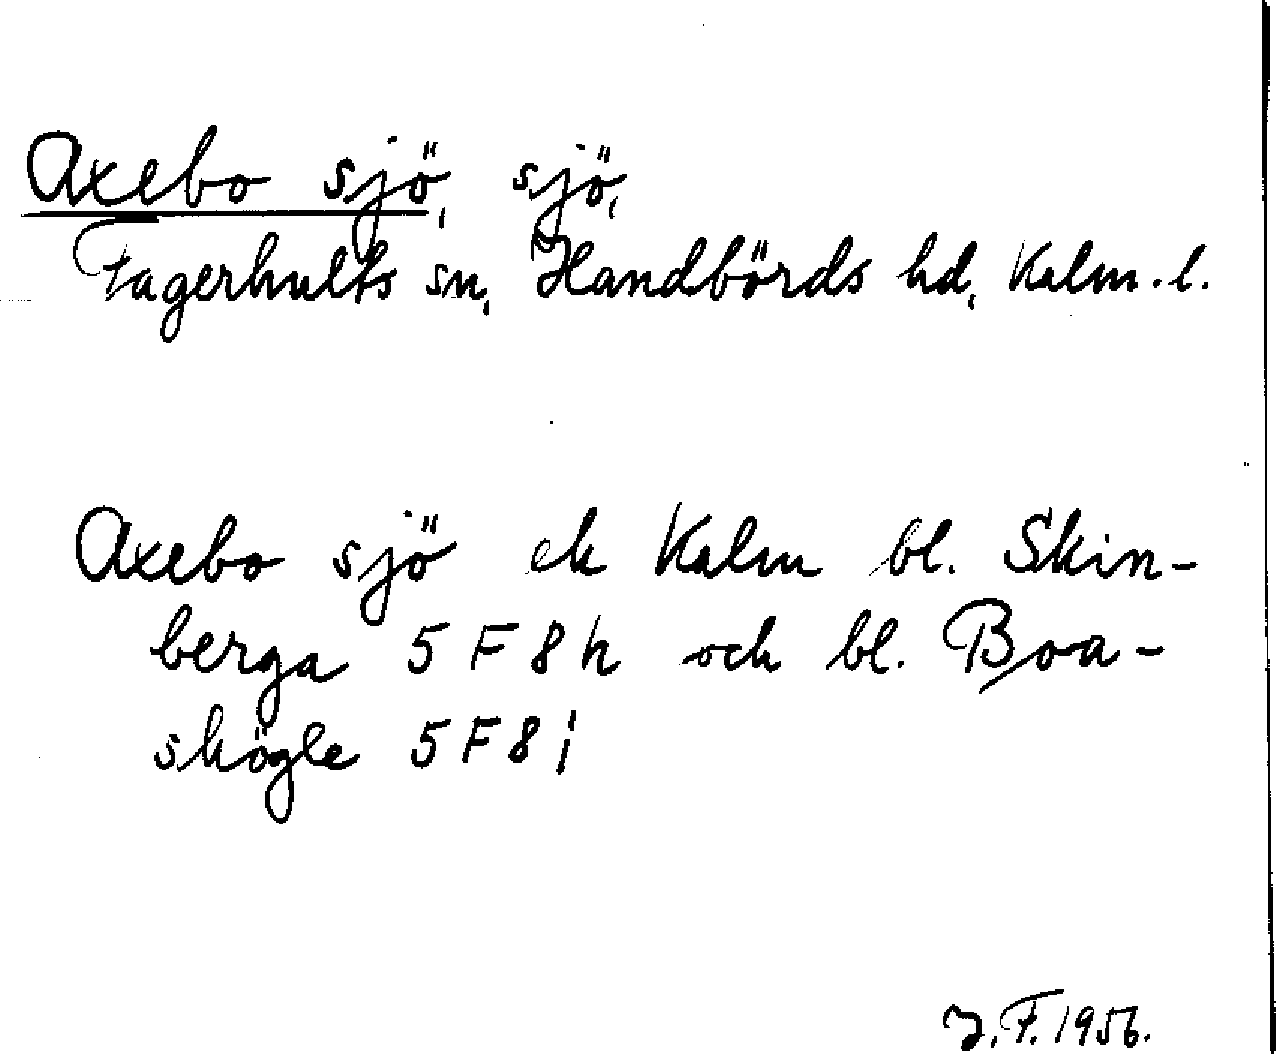 Axebo sjö, sjö,
Fagerhults sn, Handbörds hd, Kalm. l.
Axebo sjö ek Kalm bl. Skin-
berga 5 F 8 h och bl. Boa-
skögle 5 F 8 i
J.F. 1956.